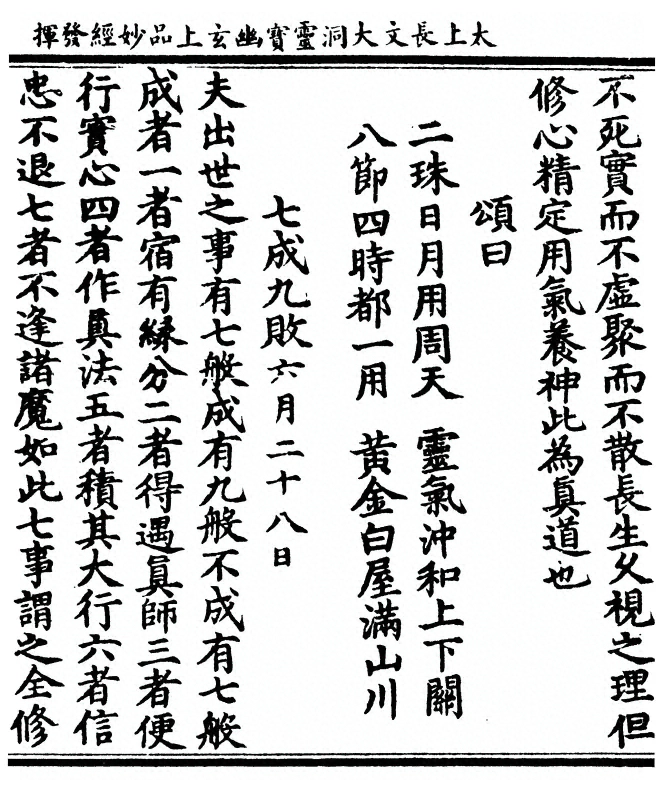 太上長文大洞靈寶幽玄上品妙經發揮
不死實而不虛聚而不散長生久視之理但
修心精定用氣養神此為眞道也
頌曰
二珠日月用周天　靈氣沖和上下關
八節四時都一用　黃金白屋滿山川
七成九敗六月二十八日
夫出世之事有七般成有九般不成有七般
成者一者宿有緣分二者得遇眞師三者便
行實心四者作眞法五者積其大行六者信
忠不退七者不逢諸魔如此七事謂之全修